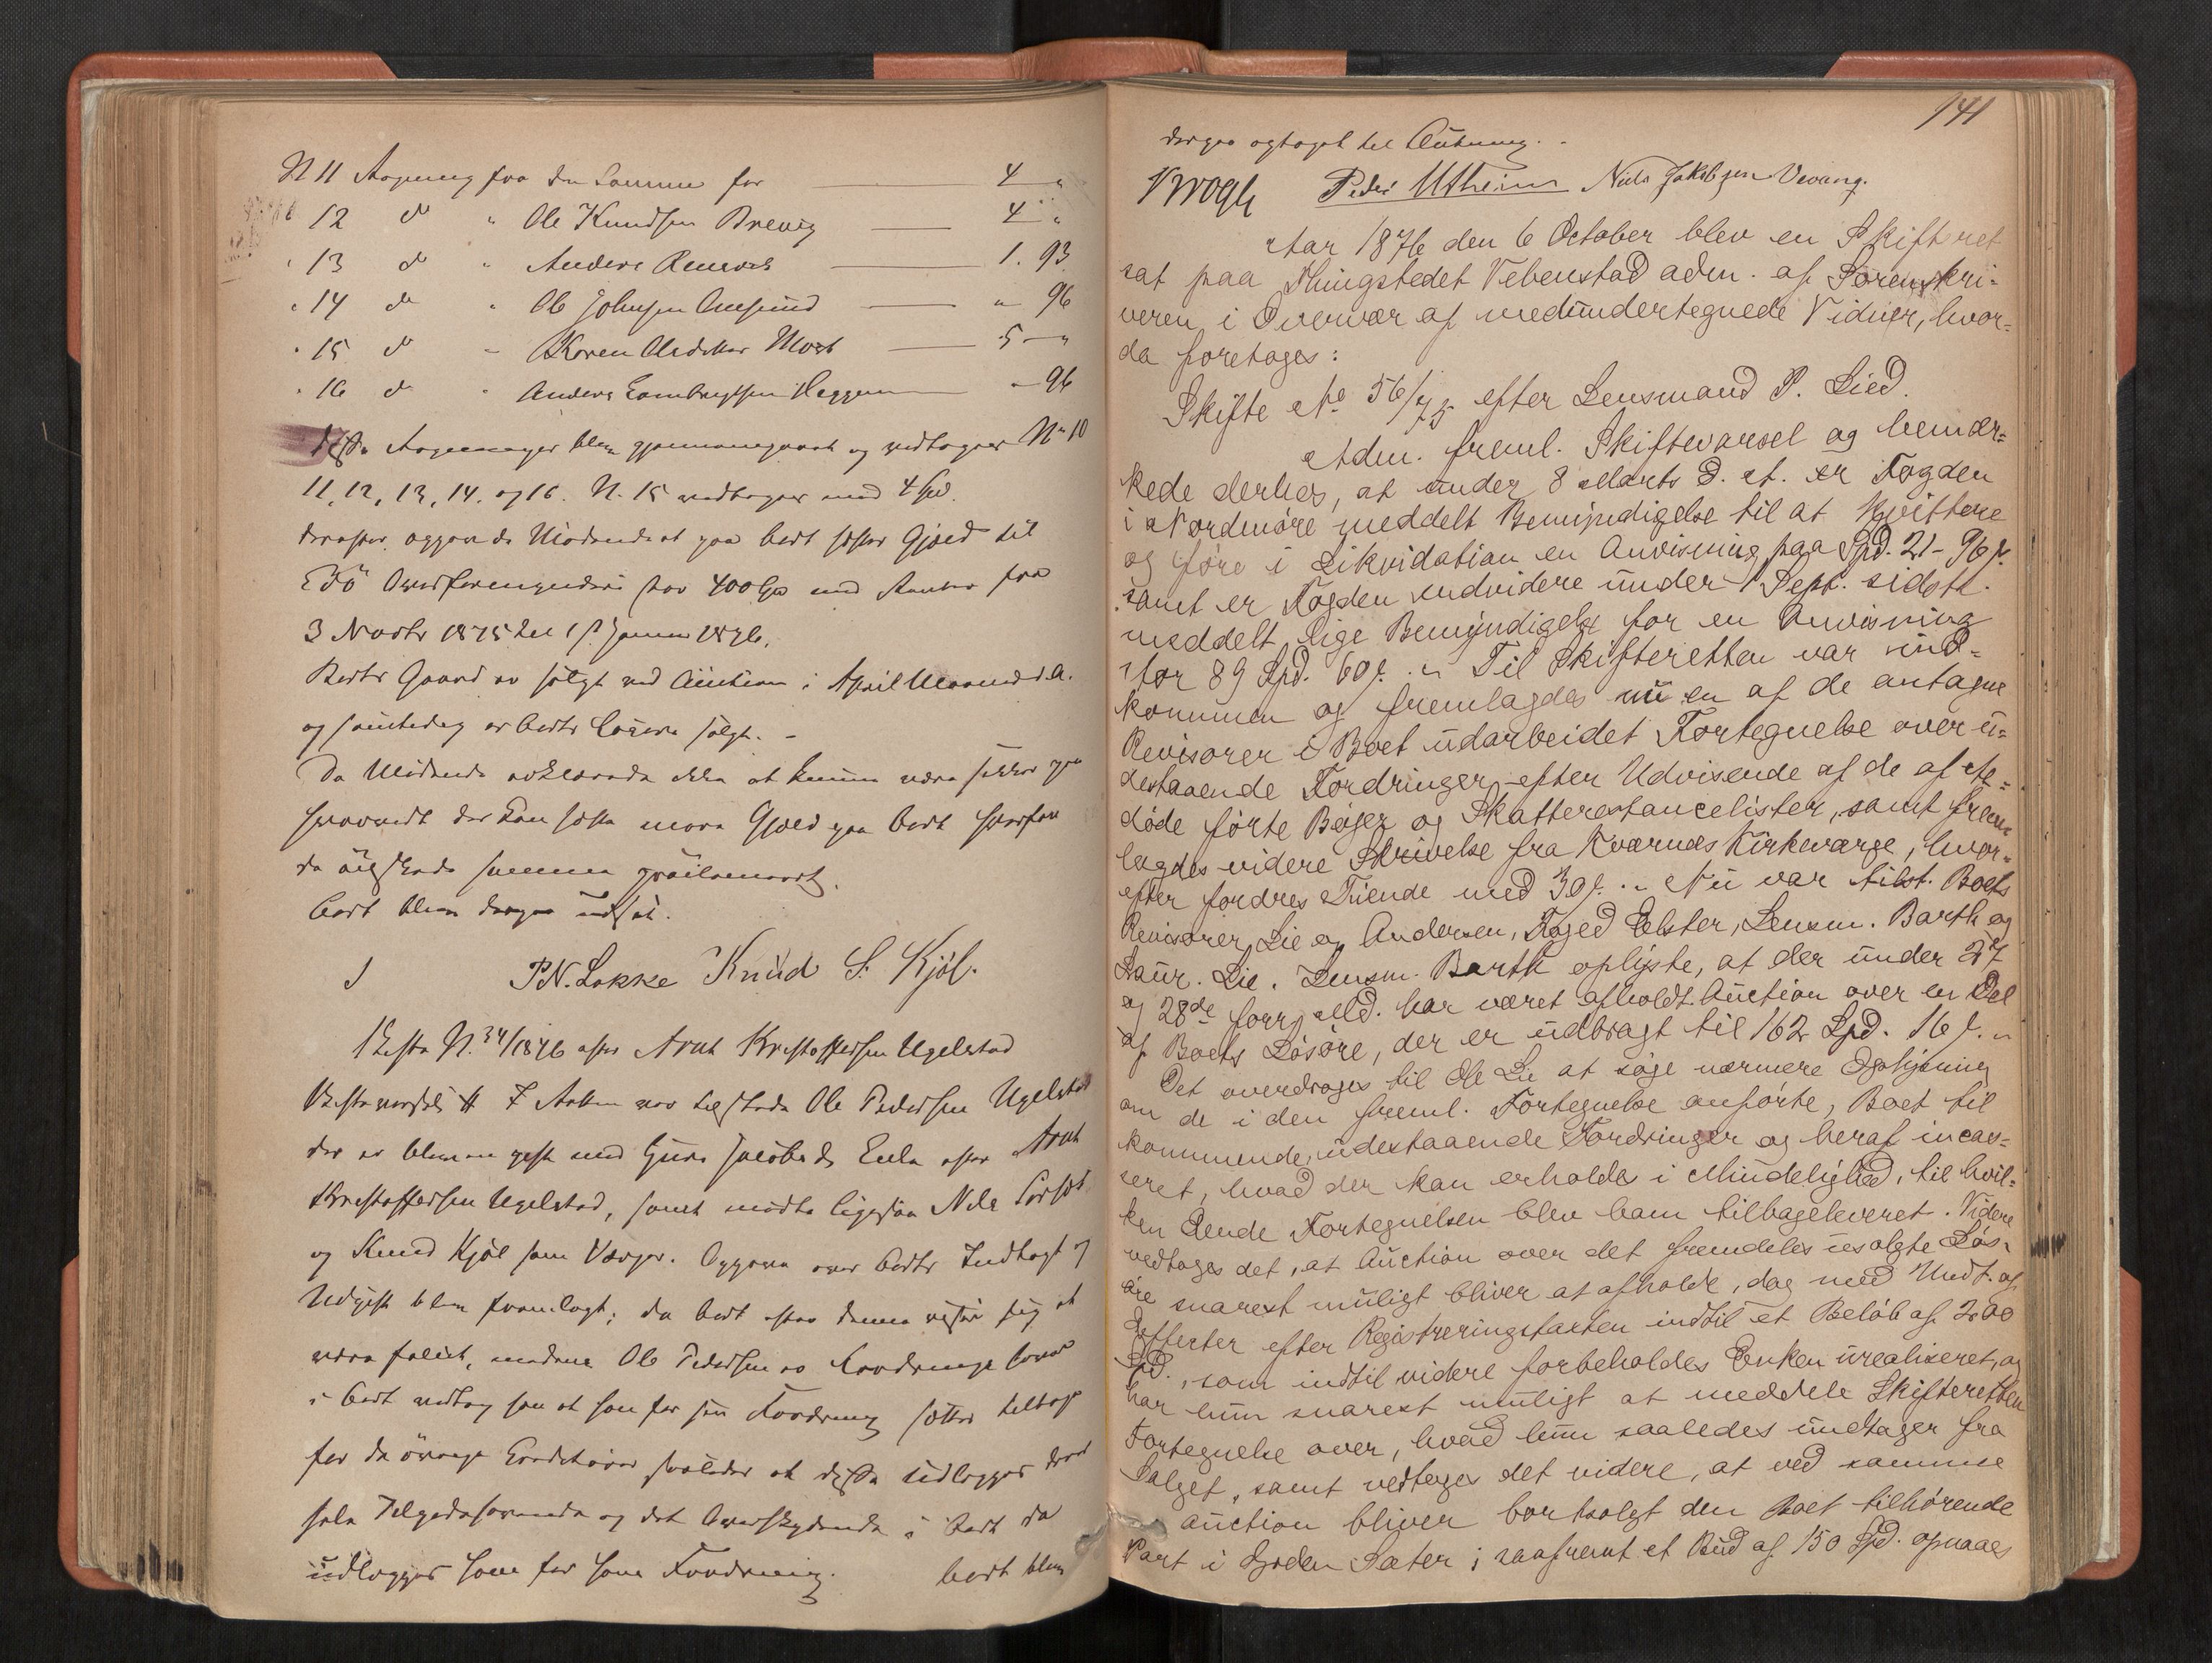 N 11 Regning fra den Samme for 4 "
" 12 do " Ole Knudsen Brevig 4 "
" 13 do " Anders 1. 93
" 14 do " Ole Johnsen " 96
" 15 do " Karen 5 "
" 16 do " Anders Lambregtsen Heggem " 96
Disse Regninger blev gjennemgaaet og vedtages No 10
11, 12, 13, 14. og 16. N. 15 vedtages med 4 Spd.
derefter opgav de Mødende at paa boet hefter Gjæld til
Edø Overformynderi stor 400 Spd med Renter fra
3 1875 til 1876.
Boets Gaard er solgt ved Auction i April Maaned d.A.
og samtidig er boets Løsøre solgt. -
Da Mødende erklærede ikke at kunne være sikker paa
hvorvidt der kan hefte mere Gjæld paa boet hvorfor
de ønskede samme
boet blev derpaa udsat.
P.N. Lokke Knud S. Kjøl.
Skifte N. 34/1876 efter Arnt Kristoffersen Ugelstad
Skiftevarsel # I Retten var tilstede Ole Pedersen Ugelstad
der er bleven gift med Guru Jacobsd. Enke efter Arnt
Kristoffersen Ugelstad, samt mødte ligesaa Nils
og Knud Kjøl som Værger. Opgave over boets Indtægt og
Udgift blev fremlagt; da boet efter denne viser sig at
være fallit, medens Ole Pedersen
i boet vedtog han at han for sin Fordring sætter tilbage
for de øvrige Creditorer saaledes at disse udlægges
hele Tilgodehavende og det Overskydende i boet da
udlægges ham for hans Fordring. boet blev
141
derpaa optaget til Slutning. -
Krogh Peder Utheim Niels Jakobsen Vevang.
Aar 1876 den 6 October blev en Skifteret
sat paa Thingstedet Vebenstad adm. af Sorenskri=
veren i Overvær af medundertegnede Vidner, hvor=
da foretages:
Skifte No 56/75 efter Lensmand P. Lied.
Adm. freml. Skiftevarsel og bemær=
kede derhos, at under 8 Marts d. A. er Fogden
i Nordmøre meddelt Bemyndigelse til at kvittere
og føre i Likvidation en Anvisning paa Spd. 21 - 96 s.
samt er Fogden endvidere under 1 Sept. sidstl.
meddelt lige Bemyndigelse for en Anvisning
stor 89 Spd. 60 s. " Til Skifteretten var ind=
kommen og fremlagdes nu en af de antagne
Revisorer i Boet udarbeidet Fortegnelse over u=
destaaende Fordringer efter Udvisende af de af Af=
døde førte Bøger og Skatterestancelister, samt frem=
lagdes videre Skrivelse fra Kværnes Kirkeværge, hvor=
efter fordres Tiende med 30 s. " Nu var tilst. Boets
Revisorer Lie og Andersen, Foged Elster, Lensm. Barth og
Laur. Lie. Lensm. Barth oplyste, at der under 27
og 28de forr. Md. har været afholdt Auction over en Del
af Boets Løsøre, der er udbragt til 162 Spd. 16 s. "
Det overdroges til Ole Lie at søge nærmere Oplysning
om de i den freml. Fortegnelse anførte, Boet til
kommende, udestaaende Fordringer og heraf incas=
seret, hvad der kan erholdes i Mindelighed, til hvil=
ken Ende Fortegnelsen blev ham tilbageleveret. Videre
vedtages det, at Auction over det fremdeles usolgte Løs=
øre snarest muligt bliver at afholde, dog med Undt. af
Effecter efter Registreringstaxten indtil et Beløb af 200
Spd., som indtil videre forbeholdes Enken urealiseret, og
har hun snarest muligt at meddele Skifteretten
Fortegnelse over, hvad hun saaledes undtager fra
Salget, samt vedtages det videre, at ved samme
Auction bliver bortsolgt den Boet tilhørende
Part i Gorden Sæter; saafremt et Bud af 150 Spd. opnaaes